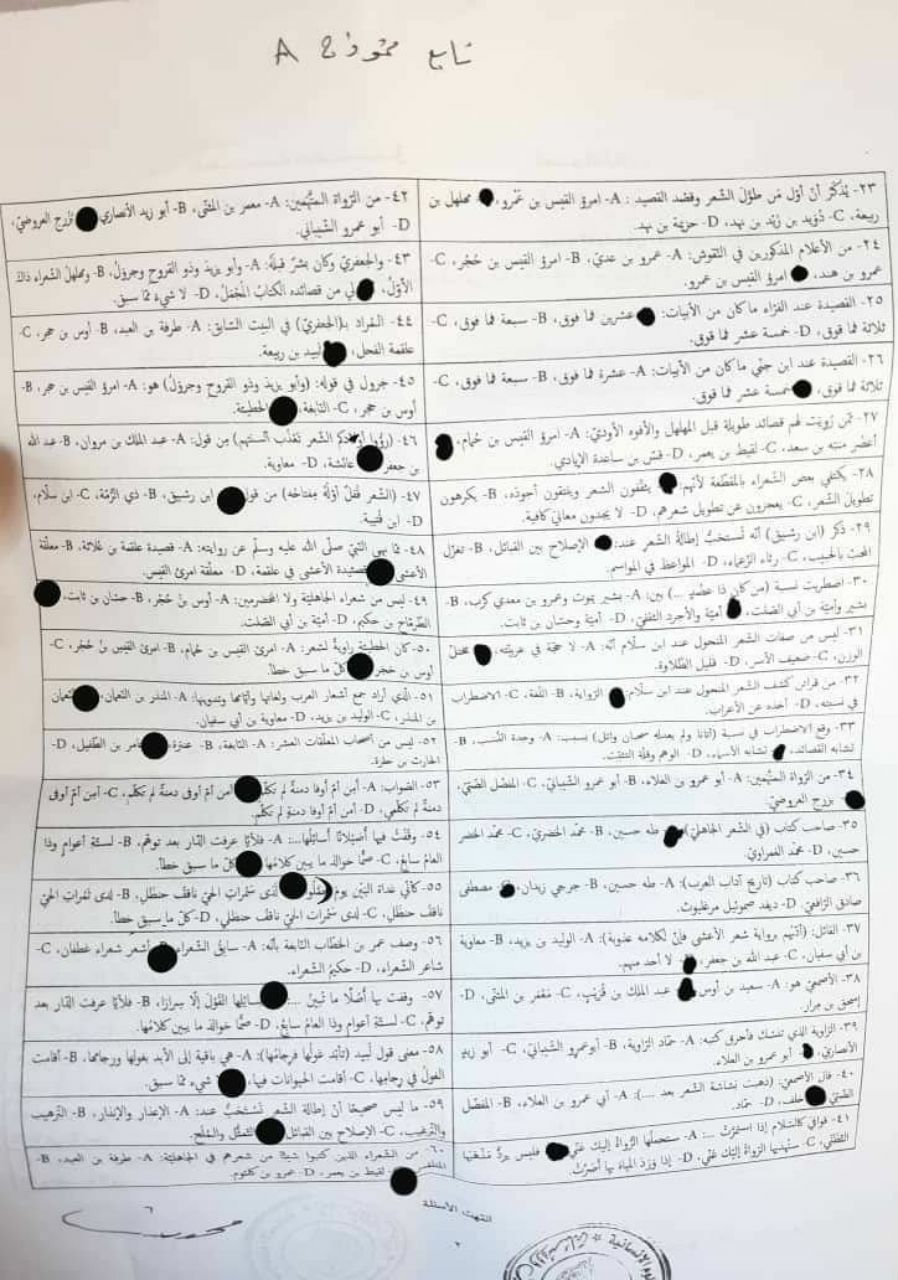 تابع نموذج A
٢٣- يُذكَرُ أنّ أوّل مَن طوّلَ الشّعر وقصّد القصيد : A- امرؤ القيس بن عَمْرو، مهلهل بن
ربيعة، C- دُوَيد بن زَيْد بن نهد، D- حزيمة بن نهد.
٢٤- من الأعلام المذكورين في النقوش: A- عمرو بن عديّ، B- امرؤ القيس بن حُجْر، C-
عمرو بن هند، امرؤ القيس بن عمرو.
٢٥- القصيدة عند الفرّاء ما كان من الأبيات: عشرين فما فوق، B- سبعة فما فوق، C-
ثلاثة فما فوق، D- خمسة عشر فما فوق.
٢٦- القصيدة عند ابن جنّي ما كان من الأبيات: A- عشرة فما فوق، B- سبعة فما فوق، C-
ثلاثة فما فوق، خمسة عشر فما فوق.
٢٧- ممّن رُويَت لهم قصائد طويلة قبل المهلهل والأفوه الأوديّ: A- امرؤ القيس بن حُمام،
أعصُر منبّه بن سعد، C- لقيط بن يعمر، D- قسّ بن ساعدة الإيادي.
٢٨- يكتفي بعض الشّعراء بالمقطّعة لأنّهم: يثقّفون الشعر وينتقون أجوده، B- يكرهون
تطويلَ الشّعر، C- يعجزون عن تطويل شعرهم، D- لا يجدون معاني كافية.
٢٩- ذكر (ابن رشيق) أنّه تُستحَبُّ إطالةُ الشّعر عند: الإصلاح بين القبائل، B- تغزّل
المحبّ بالحبيب، C- رثاء الزّعماء، D- المواعظ في المواسم.
٣٠- اضطربت نسبة (من كان ذا عضُدٍ ...) بين: A- بشير يموت وعمرو بن معدي كرب، B-
بشير وأميّة بن أبي الصّلت، أميّة والأجرد الثقفيّ، D- أميّة وحسّان بن ثابت.
٣١- ليس من صفات الشّعر المنحول عند ابن سلّام أنّه: A- لا حجّة في عربيّته، مختلّ
الوزن، C- ضعيف الأسر، D- قليل الطّلاوة.
٣٢- من قرائن كشف الشّعر المنحول عند ابن سلّام: الرّواية، B- اللّغة، C- الاضطراب
في نسبته، D- أخذه عن الأعراب.
٣٣- وقع الاضطراب في نسبة (أتانا ولم يعدله سحبان وائل) بسبب: A- وحدة النّسب، B-
تشابه القصائد، تشابه الأسماء، D- الوهم وقلّة التثبّت.
٣٤- من الرّواة المتّهمين: A- أبو عمرو بن العلاء، B- أبو عمرو الشّيبانيّ، C- المفضّل الضّبّيّ،
بزرج العروضيّ.
٣٥- صاحب كتاب (في الشّعر الجاهليّ): طه حسين، B- محمّد الخضريّ، C- محمّد الخضر
حسين، D- محمّد الغمراويّ.
٣٦- صاحب كتاب (تاريخ آداب العرب): A- طه حسين، B- جرجي زيدان، مصطفى
صادق الرّافعيّ، D- ديفد صموئيل مرغليوث.
٣٧- القائل: (ائتهم برواية شعر الأعشى فإنّ لكلامه عذوبة): A- الوليد بن يزيد، B- معاوية
بن أبي سفيان، C- عبد الله بن جعفر، لا أحد منهم.
٣٨- الأصمعيّ هو: A- سعيد بن أوس، عبد الملك بن قُرَيْب، C- مَعْمَر بن المثنّى، D-
إسحق بن مرار.
٣٩- الرّاوية الذي تنسّك فأحرق كتبه: A- حمّاد الرّاوية، B- أبوعمرو الشّيبانيّ، C- أبو زيد
الأنصاريّ، أبو عمرو بن العلاء.
٤٠- قال الأصمعيّ: (ذهبت بشاشة الشّعر بعد ....): A- أبي عمرو بن العلاء، B- المفضّل
الضّبّيّ، خلف، D- حمّاد.
٤١- قوافي كالسّلام إذا استمرّتْ ...: A- ستحملها الرّواةُ إليكَ عنّي، فليس يردُّ مذهبَها
التظنّي، C- ستُهديها الرّواةُ إليك عنّي، D- إذا وَرَدَ المياهَ بها أضرّتْ.
٤٢- من الرّواة المتّهمين: A- معمر بن المثنّى، B- أبو زيد الأنصاري، بُزرج العروضيّ،
D- أبو عمرو الشّيبانيّ.
٤٣- والجعفريُّ وكان بشرٌ قبلهُ: A- وأبو يزيدَ وذو القروحِ وجرولُ، B- ومهلهلُ الشّعراءِ ذاكَ
الأوّلُ، لي من قصائده الكتابُ المُجمَلُ، D- لا شيءَ ممّا سبق.
٤٤- المُراد بـ(الجعفريّ) في البيت السّابق: A- طرفة بن العبد، B- أوس بن حجر، C-
علقمة الفحل، لبيد بن ربيعة.
٤٥- جرول في قوله: (وأبو يزيدَ وذو القروح وجرولُ) هو: A- امرؤ القيس بن حجر، B-
أوس بن حجر، C- النّابغة، الحطيئة.
٤٦- (رَوُّوا أولادكم الشّعر تَعْذُب ألسنتهم) مِن قول: A- عبد الملك بن مروان، B- عبد الله
بن جعفر، عائشة، D- معاوية.
٤٧- (الشّعر قُفلٌ أوّلُهُ مِفتاحُه) من قول: ابن رشيق، B- ذي الرُّمّة، C- ابن سلّام،
D- ابن قُتيبة.
٤٨- ممّا نهى النّبيّ صلّى الله عليه وسلّم عن روايته: A- قصيدة علقمة بن عُلاثة، B- معلّقة
الأعشى، قصيدة الأعشى في علقمة، D- معلّقة امرئ القيس.
٤٩- ليس من شعراء الجاهليّة ولا المخضرمين: A- أوس بنُ حُجْر، B- حسّان بن ثابت،
الطّرمّاح بن حكيم، D- أميّة بن أبي الصّلت.
٥٠- كان الحطيئة راويةً لشعر: A- امرئ القيس بن حُمام، B- امرئ القيس بنُ حُجْر، C-
أوس بن حجر، كلّ ما سبق خطأ.
٥١- الّذي أراد جمعَ أشعار العرب ولغاتها وأيّامها وتدوينها: A- المنذر بن النّعمان، النّعمان
بن المنذر، C- الوليد بن يزيد، D- معاوية بن أبي سفيان.
٥٢- ليس من أصحاب المعلّقات العشر: A- النّابغة، B- عنترة، عامر بن الطّفيل، D-
الحارث بن حلزة.
٥٣- الصّواب: A- أَمِن أمّ أوفا دمنةٌ لم تكلّمِ، أمن أمّ أوفى دمنةٌ لم تكلّمِ، C- أمِن أمّ أوفى
دمنةٌ لم تكلّمي، D- أمن أمّ أوفا دمنةٍ لم تكلّمِ.
٥٤- وقَفْتُ فيها أصيلانًا أسائِلُها...: A- فلأيًا عرفت الدّار بعد توهّم، B- لستّةِ أعوامٍ وذا
العامُ سابعُ، C- صُمًّا خوالدَ ما يبين كلامُها، كلّ ما سبق خطأ.
٥٥- كأنّي غداةَ البَيْنِ يومَ تحمّلوا: لَدى سَمُراتِ الحيّ ناقفُ حنظلِ، B- لدى ثمُراتِ الحيّ
ناقفُ حنظلِ، C- لدى سَمُراتِ الحيّ ناقفُ حنظلي، D- كلّ ما سبق خطأ.
٥٦- وصف عمر بن الخطّاب النّابغة بأنّه: A- سابقُ الشّعراء، أشعر شعراء غطفان، C-
شاعر الشّعراء، D- حكيمُ الشّعراء.
٥٧- وقفت بها أُصُلًا ما تُبينُ ...: سائلِها القَوْلَ إلّا سِرارًا، B- فلأيًا عرفت الدّار بعد
توهّم، C- لستّةِ أعوام وذا العامُ سابعُ، D- صُمًّا خوالدَ ما يبين كلامُها.
٥٨- معنى قول لَبيد (تأبّدَ غَولُها فرِجامُها): A- هي باقية إلى الأبد بغولها ورجامها، B- أقامت
الغولُ في رجامِها، C- أقامت الحيوانات فيها، شيء ممّا سبق.
٥٩- ما ليس صحيحًا أنّ إطالةَ الشّعرِ تُستَحبُّ عند: A- الإعذار والإنذار، B- التّرهيب
والتّرغيب، C- الإصلاح بين القبائل، التمثّل والمُلَح.
٦٠- من الشّعراء الذين كتبوا شيئًا من شعرهم في الجاهليّة: A- طرفة بن العبد، B-
لقيط بن يعمر، D- عمرو بن كلثوم.
انتهت الأسئلة
٢